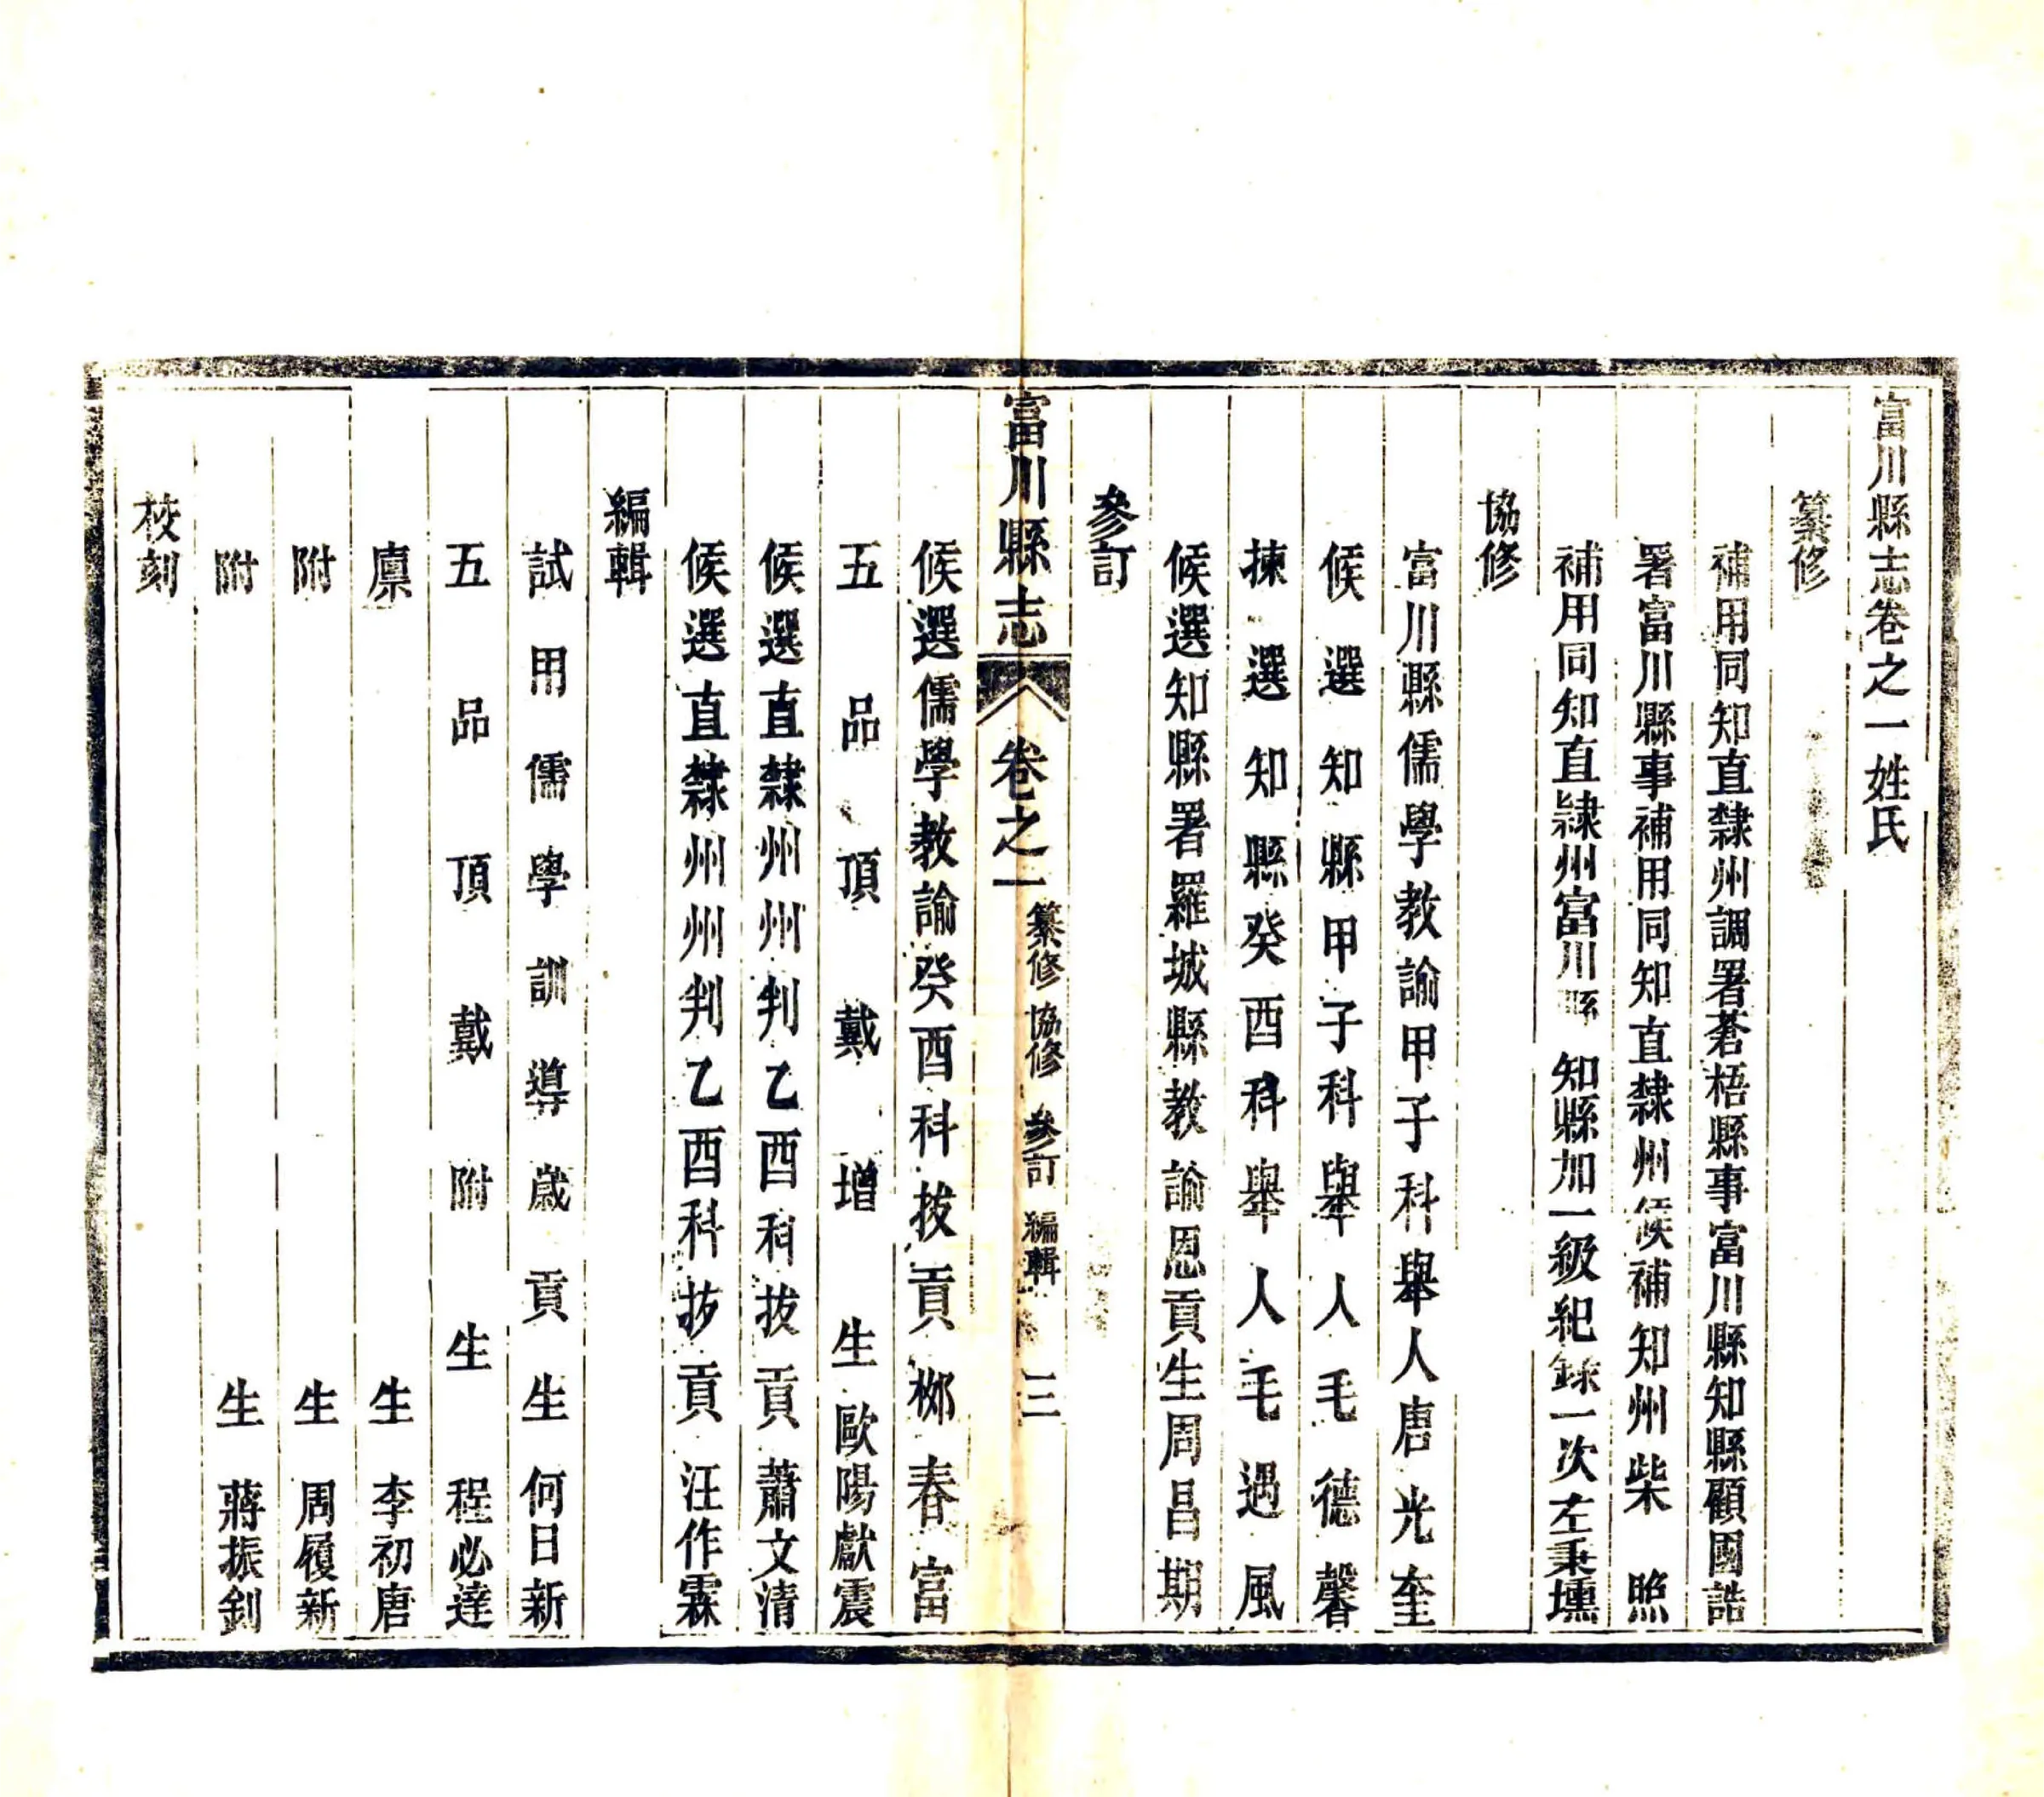 富川縣志卷之一 姓氏
纂修
補用同知直隸州調署蒼梧縣事富川縣知縣顧國誥
署富川縣事補用同知直隸州候補知州柴照
補用同知直隸州富川縣知縣加一級紀錄一次左秉壎
協修
富川縣儒學教諭甲子科舉人唐光奎
候選知縣甲子科舉人毛德馨
揀選知縣癸酉科舉人毛遇風
候選知縣署羅城縣教諭恩貢生周昌期
參訂
富川縣志 卷之一 纂修 協修 參訂 編輯 三
候選儒學教諭癸酉科拔貢鄉春富
五品頂戴增生歐陽獻震
候選直隸州州判乙酉科拔貢蕭文清
候選直隸州州判乙酉科拔貢汪作霖
編輯
試用儒學訓導歲貢生何日新
五品頂戴附生程必達
廩生李初唐
附生周履新
附生蔣振釗
校刻